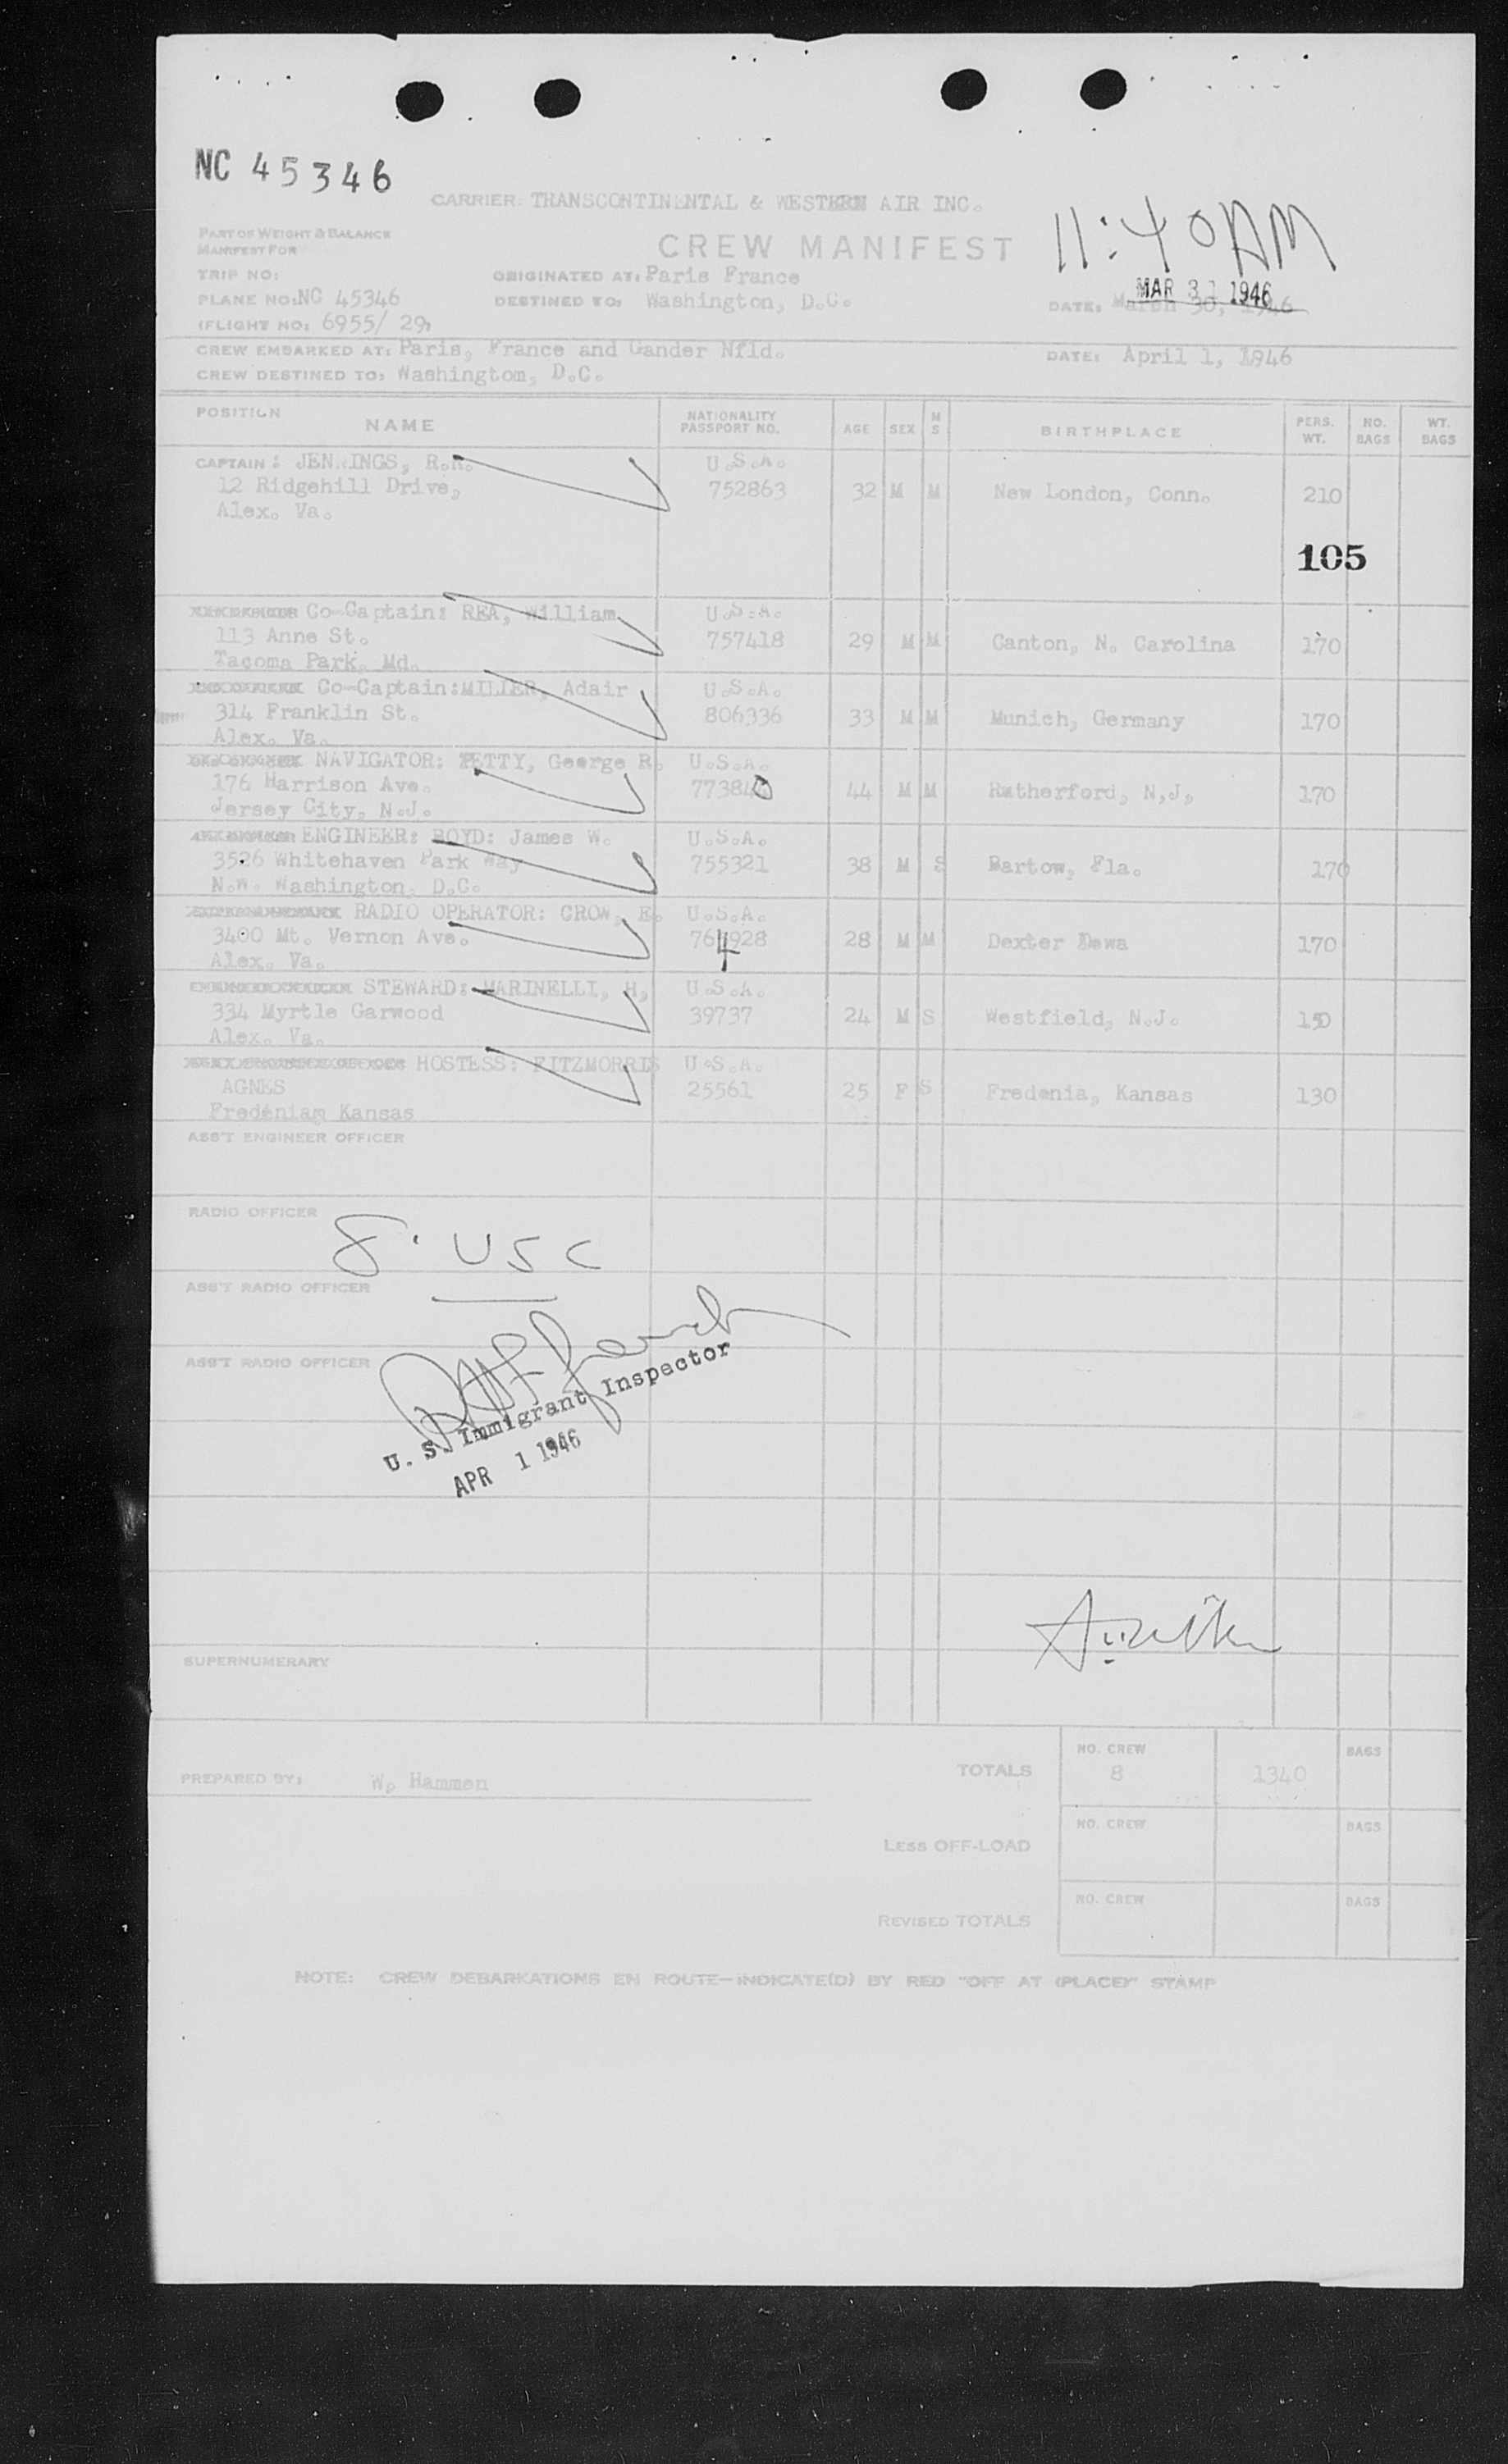 NC 45346
CARRIER: TRANSCONTINENTAL & WESTERN AIR INC.
PART OF WEIGHT & BALANCE
MANIFEST FOR
CREW MANIFEST
11:40 AM
TRIP NO:
ORIGINATED AT: Paris France
PLANE NO: NC 45346
DESTINED TO: Washington, D.C.
DATE: March 30, 1946
MAR 31 1946
(FLIGHT NO: 6955/ 29)
CREW EMBARKED AT: Paris, France and Gander Nfld.
DATE: April 1, 1946
CREW DESTINED TO: Washingtom, D.C.
POSITION NAME NATIONALITY PASSPORT NO. AGE SEX M S BIRTHPLACE PERS. WT. NO. BAGS WT. BAGS
CAPTAIN: JENNINGS, R.R. U.S.A.
12 Ridgehill Drive, 752863 32 M M New London, Conn. 210
Alex. Va.
105
Co-Captain: REA, William U.S.A.
113 Anne St. 757418 29 M M Canton, N. Carolina 170
Tacoma Park. Md.
Co-Captain:MILLER, Adair U.S.A.
314 Franklin St. 806336 33 M M Munich, Germany 170
Alex. Va.
NAVIGATOR: PETTY, George R. U.S.A.
176 Harrison Ave. 773840 44 M M Rutherford, N,J, 170
Jersey City, N.J.
ENGINEER: BOYD: James W. U.S.A.
3526 Whitehaven Park Way 755321 38 M S Bartow, Fla. 170
N.W. Washington, D.C.
RADIO OPERATOR: CROW, E. U.S.A.
3400 Mt. Vernon Ave. 764928 28 M M Dexter 170
Alex. Va.
STEWARD: MARINELLI, H, U.S.A.
334 Myrtle Garwood 39737 24 M S Westfield, N.J. 150
Alex. Va.
HOSTESS: FITZMORRIS U.S.A.
AGNES 25561 25 F S Fredonia, Kansas 130
Fredeniam Kansas
ASS'T ENGINEER OFFICER
RADIO OFFICER
8. USC
ASS'T RADIO OFFICER
ASS'T RADIO OFFICER
U. S. Immigrant Inspector
APR 1 1946
SUPERNUMERARY
PREPARED BY: W. Hammen
TOTALS NO. CREW 8 1340 BAGS
LESS OFF-LOAD NO. CREW BAGS
REVISED TOTALS NO. CREW BAGS
NOTE: CREW DEBARKATIONS EN ROUTE—INDICATE(D) BY RED "OFF AT (PLACE)" STAMP